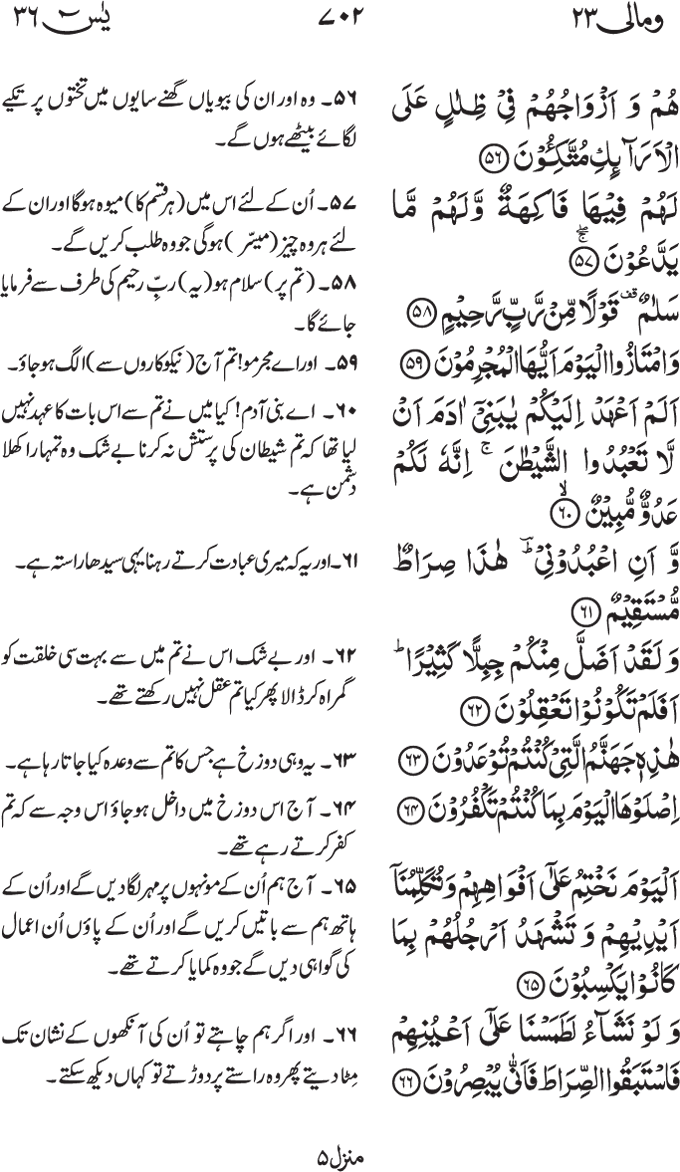 ومالی ۲۳ ۷۰۲ یٰسٓ ۳۶
هُمۡ وَ اَزۡوَاجُهُمۡ فِیۡ ظِلٰلٍ عَلَی
الۡاَرَآئِكِ مُتَّكِـُٔوۡنَ ﴿۵۶﴾
لَهُمۡ فِیۡهَا فَاكِهَةٌ وَّلَهُمۡ مَّا
یَدَّعُوۡنَ ﴿۵۷﴾ۚۖ
سَلٰمٌ ۟ قَوۡلًا مِّنۡ رَّبٍّ رَّحِیۡمٍ ﴿۵۸﴾
وَامۡتَازُوا الۡیَوۡمَ اَیُّهَا الۡمُجۡرِمُوۡنَ ﴿۵۹﴾
اَلَمۡ اَعۡهَدۡ اِلَیۡكُمۡ یٰبَنِیۡۤ اٰدَمَ اَنۡ
لَّا تَعۡبُدُوا الشَّیۡطٰنَ ۚ اِنَّهٗ لَكُمۡ
عَدُوٌّ مُّبِیۡنٌ ﴿ۙ۶۰﴾
وَّ اَنِ اعۡبُدُوۡنِیۡ ؕؔ هٰذَا صِرَاطٌ
مُّسۡتَقِیۡمٌ ﴿۶۱﴾
وَ لَقَدۡ اَضَلَّ مِنۡكُمۡ جِبِلًّا كَثِیۡرًا ؕ
اَفَلَمۡ تَكُوۡنُوۡا تَعۡقِلُوۡنَ ﴿۶۲﴾
هٰذِهٖ جَهَنَّمُ الَّتِیۡ كُنۡتُمۡ تُوۡعَدُوۡنَ ﴿۶۳﴾
اِصۡلَوۡهَا الۡیَوۡمَ بِمَا كُنۡتُمۡ تَكۡفُرُوۡنَ ﴿۶۴﴾
اَلۡیَوۡمَ نَخۡتِمُ عَلٰۤی اَفۡوَاهِهِمۡ وَتُكَلِّمُنَاۤ
اَیۡدِیۡهِمۡ وَ تَشۡهَدُ اَرۡجُلُهُمۡ بِمَا
كَانُوۡا یَكۡسِبُوۡنَ ﴿۶۵﴾
وَ لَوۡ نَشَآءُ لَطَمَسۡنَا عَلٰۤی اَعۡیُنِهِمۡ
فَاسۡتَبَقُوا الصِّرَاطَ فَاَنّٰی یُبۡصِرُوۡنَ ﴿۶۶﴾
۵۶۔ وہ اور ان کی بیویاں گھنے سایوں میں تختوں پر تکیے
لگائے بیٹھے ہوں گے۔
۵۷۔ اُن کے لئے اس میں (ہر قسم کا) میوہ ہوگا اور ان کے
لئے ہر وہ چیز (میسّر) ہوگی جو وہ طلب کریں گے۔
۵۸۔ (تم پر) سلام ہو (یہ) ربِّ رحیم کی طرف سے فرمایا
جائے گا۔
۵۹۔ اور اے مجرمو! تم آج (نیکوکاروں سے) الگ ہو جاؤ۔
۶۰۔ اے بنی آدم! کیا میں نے تم سے اس بات کا عہد نہیں
لیا تھا کہ تم شیطان کی پرستش نہ کرنا بے شک وہ تمہارا کھلا
دشمن ہے۔
۶۱۔ اور یہ کہ میری عبادت کرتے رہنا یہی سیدھا راستہ ہے۔
۶۲۔ اور بے شک اس نے تم میں سے بہت سی خلقت کو
گمراہ کر ڈالا پھر کیا تم عقل نہیں رکھتے تھے۔
۶۳۔ یہ وہی دوزخ ہے جس کا تم سے وعدہ کیا جاتا رہا ہے۔
۶۴۔ آج اس دوزخ میں داخل ہو جاؤ اس وجہ سے کہ تم
کفر کرتے رہے تھے۔
۶۵۔ آج ہم اُن کے مونہوں پر مہر لگا دیں گے اور اُن کے
ہاتھ ہم سے باتیں کریں گے اور اُن کے پاؤں اُن اعمال
کی گواہی دیں گے جو وہ کمایا کرتے تھے۔
۶۶۔ اور اگر ہم چاہتے تو اُن کی آنکھوں کے نشان تک
مِٹا دیتے پھر وہ راستے پر دوڑتے تو کہاں دیکھ سکتے۔
منزل ۵